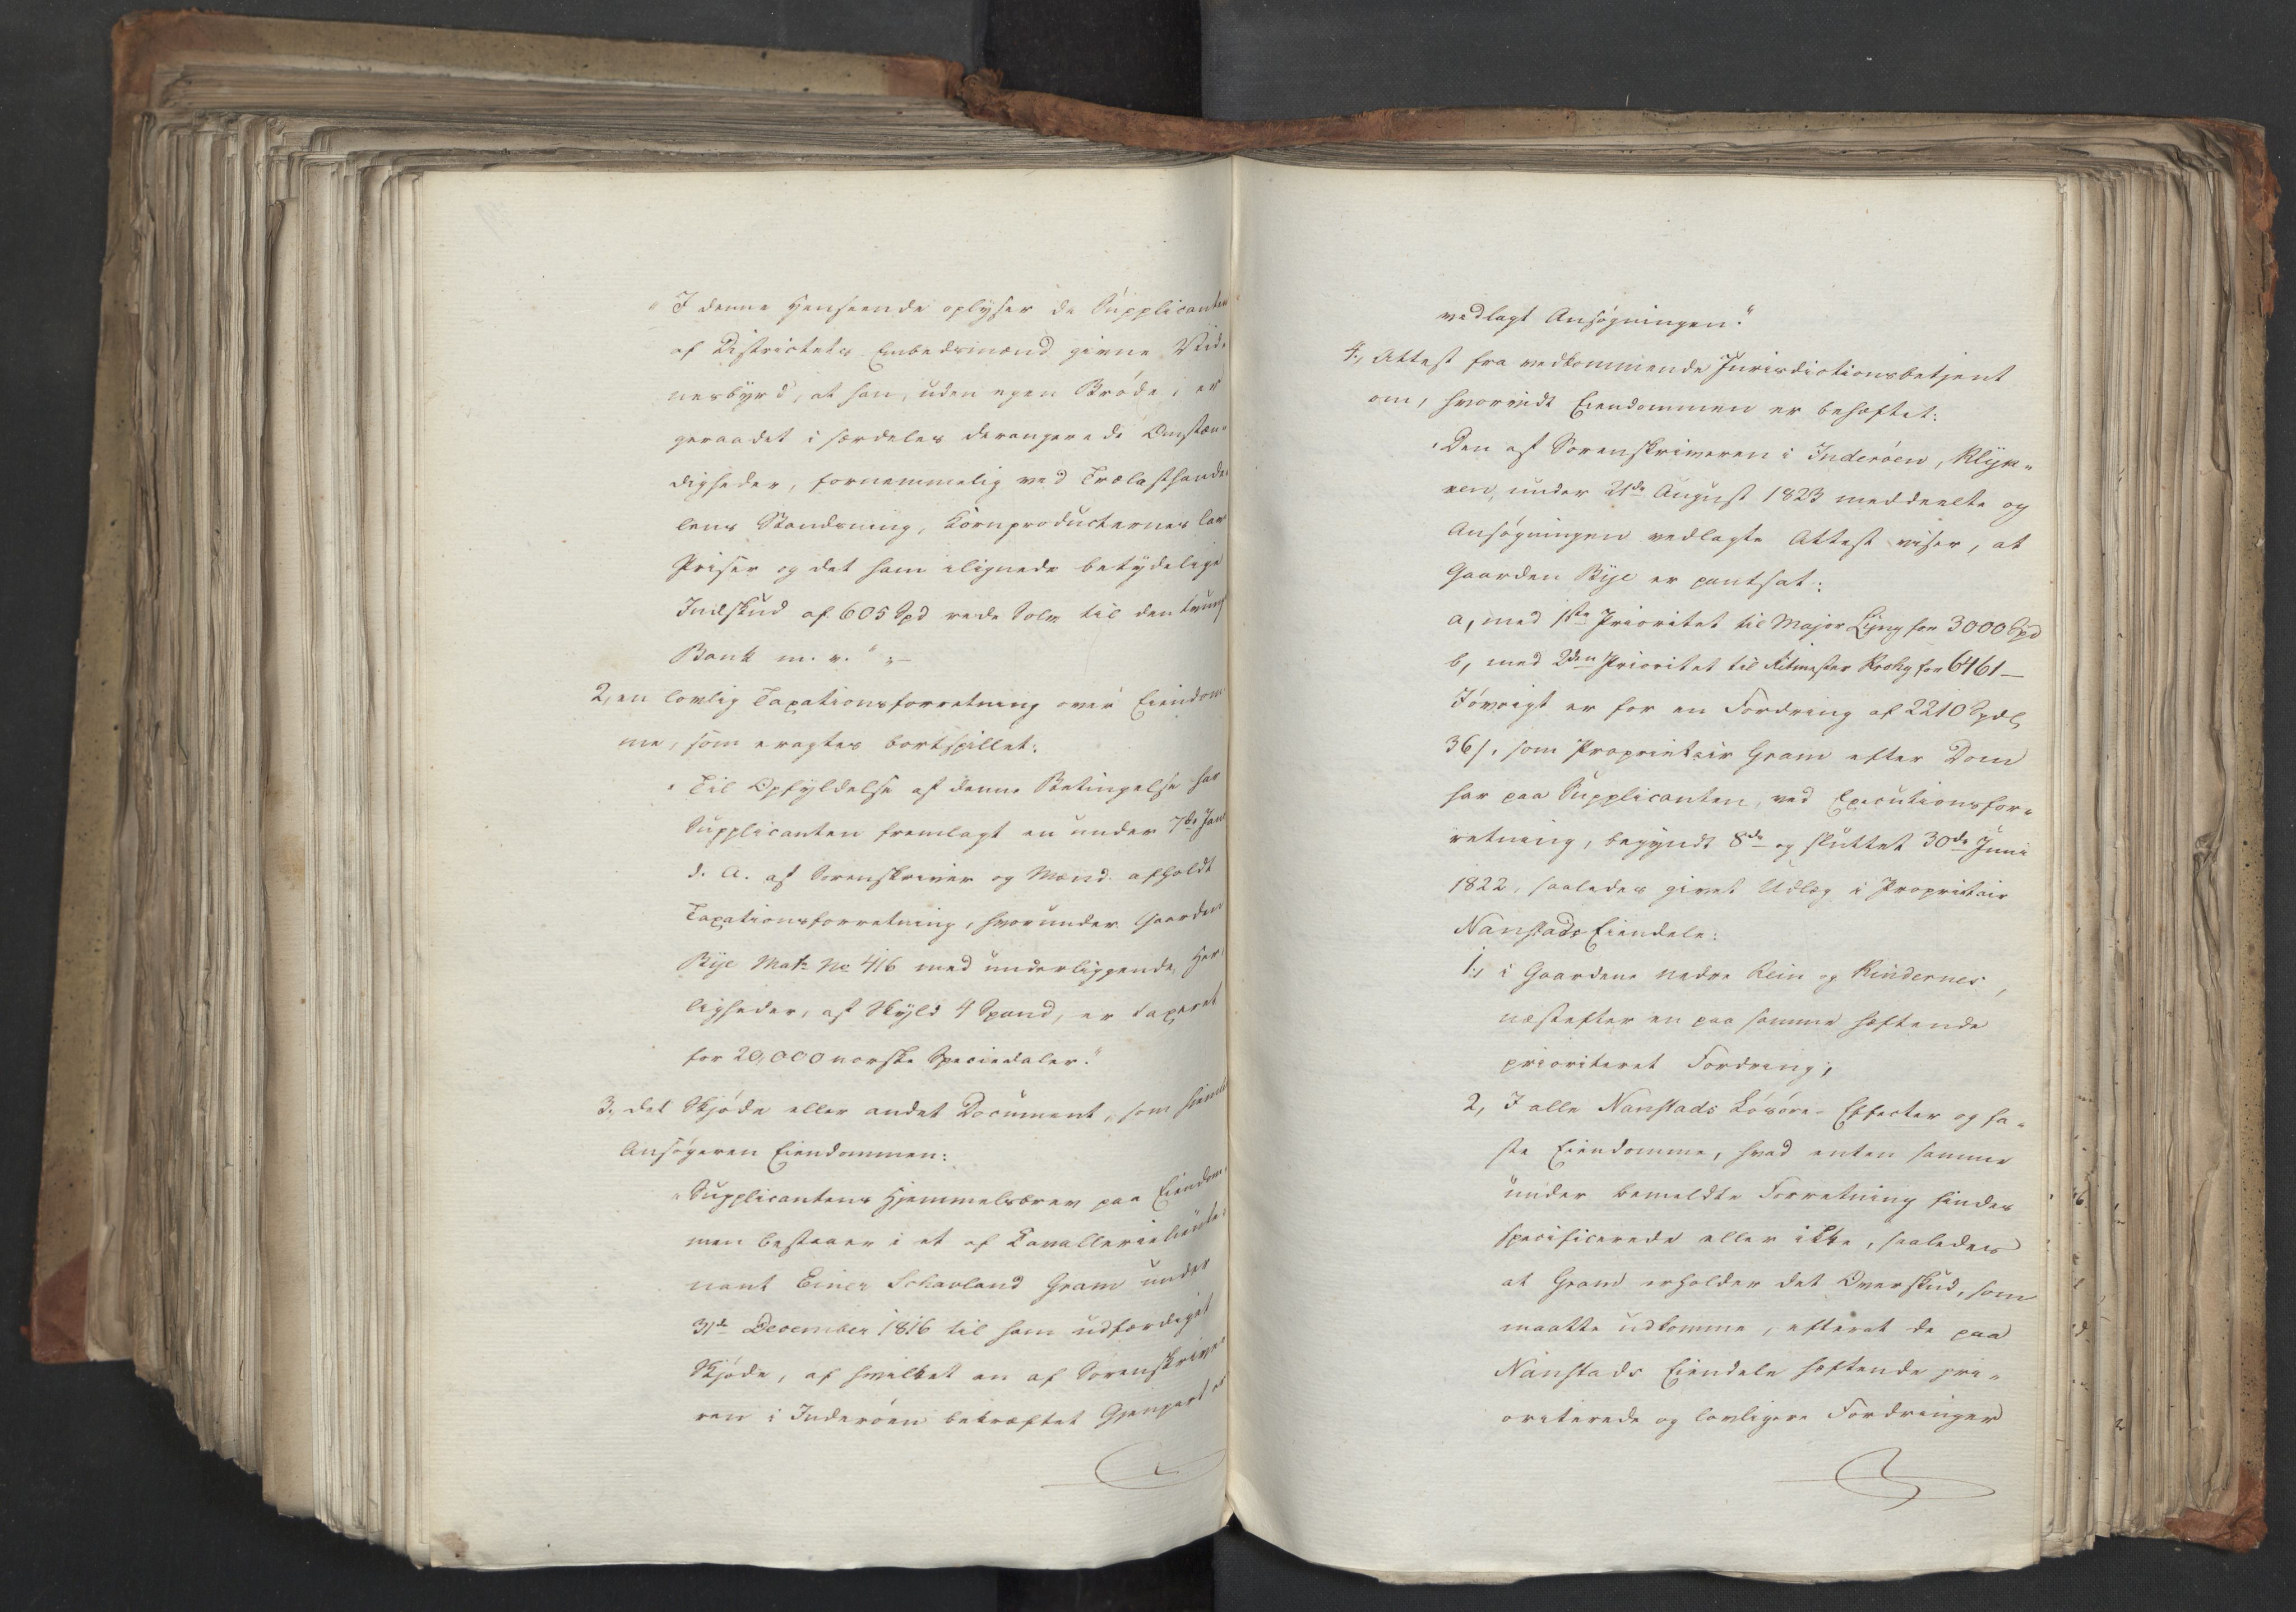 "I denne Henseende oplyser de Supplicanten
af Districtets Embedsmænd givne Vid-
nesbyrd, at han, uden egen Brøde, er
geraadet i særdeles derangerede Omstæn-
digheder, fornemmelig ved Trælasthande-
lens Standsning, Kornproducternes lave
Priser og det ham ilignede betydelige
Indskud af 605 Spd rede Sølv til den
Bank m. v." –
2, en lovlig Taxationsforretning over Eiendom-
me, som agtes bortspillet:
"Til Opfyldelse af denne Betingelse har
Supplicanten fremlagt en under 7de Jan
d. A. af Sorenskriver og Mænd afholdt
Taxationsforretning, hvorunder Gaarden
Bye Matr No 416 med underliggende Her-
ligheder, af Skyld 4 Spand, er taxeret
for 20,000 norske Speciedaler."
3, det Skjøde eller andet Document, som hjemler
Ansøgeren Eiendommen:
"Supplicantens Hjemmelsbrev paa Eiendom-
men bestaaer i et af Cavallerielieute-
nant Einer Schavland Gram under
31de December 1816 til ham udfærdiget
Skjøde, af hvilket en af Sorenskrive-
ren i Inderøen bekræftet Gjenpart er
vedlagt Ansøgningen."
4, Attest fra vedkommende Jurisdictionsbetjent
om, hvorvidt Eiendommen er behæftet:
"Den af Sorenskriveren i Inderøen, Klyn-
ven, under 21de August 1823 meddeelte og
Ansøgningen vedlagte Attest viser, at
Gaarden Bye er pantsat:
a, med 1ste Prioritet til Major Lyng for 3000 Spd
b, med 2den Prioritet til Ritmester Krohg for 6461 –
Iøvrigt er for en Fordring af 2210 Spdlr
36 s, som Proprietair Gram efter Dom
har paa Supplicanten, ved Executionsfor-
retning, begyndt 8de og sluttet 30de Juni
1822, saaledes givet Udlæg i Proprietair
Nanstads Eiendele:
1, i Gaardene nedre Rein og Rindernes,
næstefter en paa samme hæftende
prioriteret Fordring;
2, I alle Nanstads Løsøre-Effecter og fa-
ste Eiendomme, hvad enten samme
under bemeldte Forretning findes
specificerede eller ikke, saaledes
at Gram erholder det Overskud, som
maatte udkomme, efterat de paa
Nanstads Eiendele hæftende pri-
oriterede og lovligere Fordringer